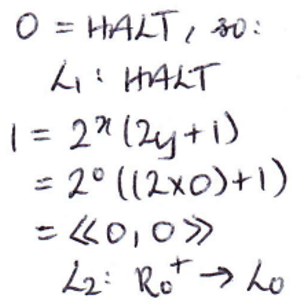 0 = HALT, so:
L₁ : HALT
1 = 2ˣ(2y+1)
= 2⁰((2×0)+1)
= ⟪0,0⟫
L₂: R₀⁺ → L₀